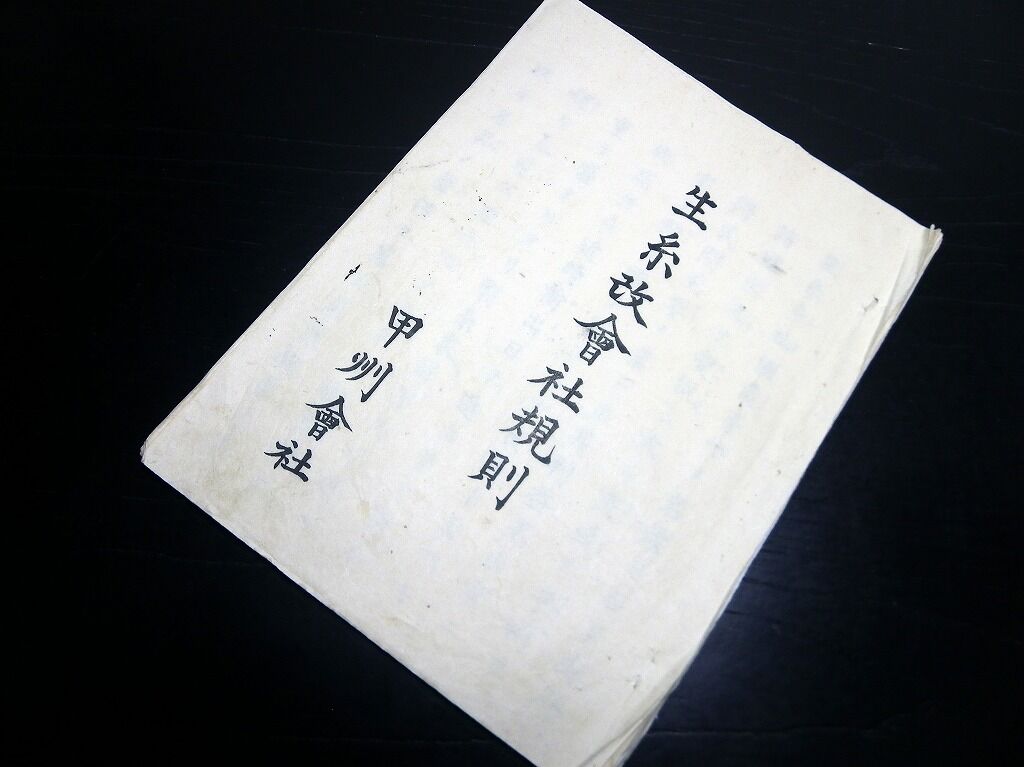 生糸改會社規則
甲州會社